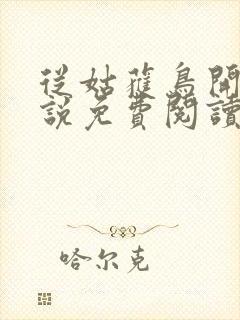 從姑獲鳥開
說免費閱讀
哈尔克